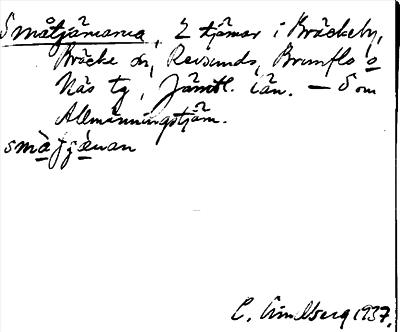 Småtjärnarna, 2 tjärnar i Bräckeby,
Bräcke sn, Revsunds, Brunflo o
Näs tg, Jämtl. län. — Som
Allmänningstjärn.
små
C. Lindberg 1937.